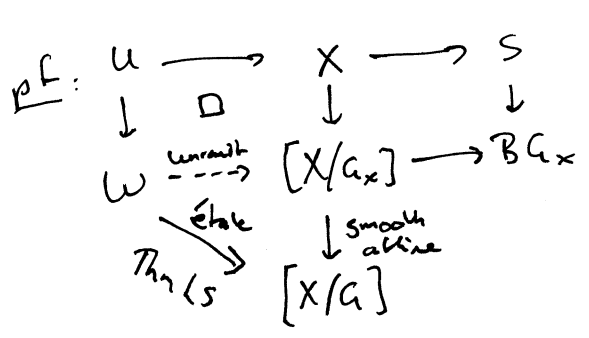 pf: U → X → S
↓ □ ↓ ↓
unramit
W ⇢ [X/Gx] → BGx
étale
smooth
affine
Thm LS
[X/G]